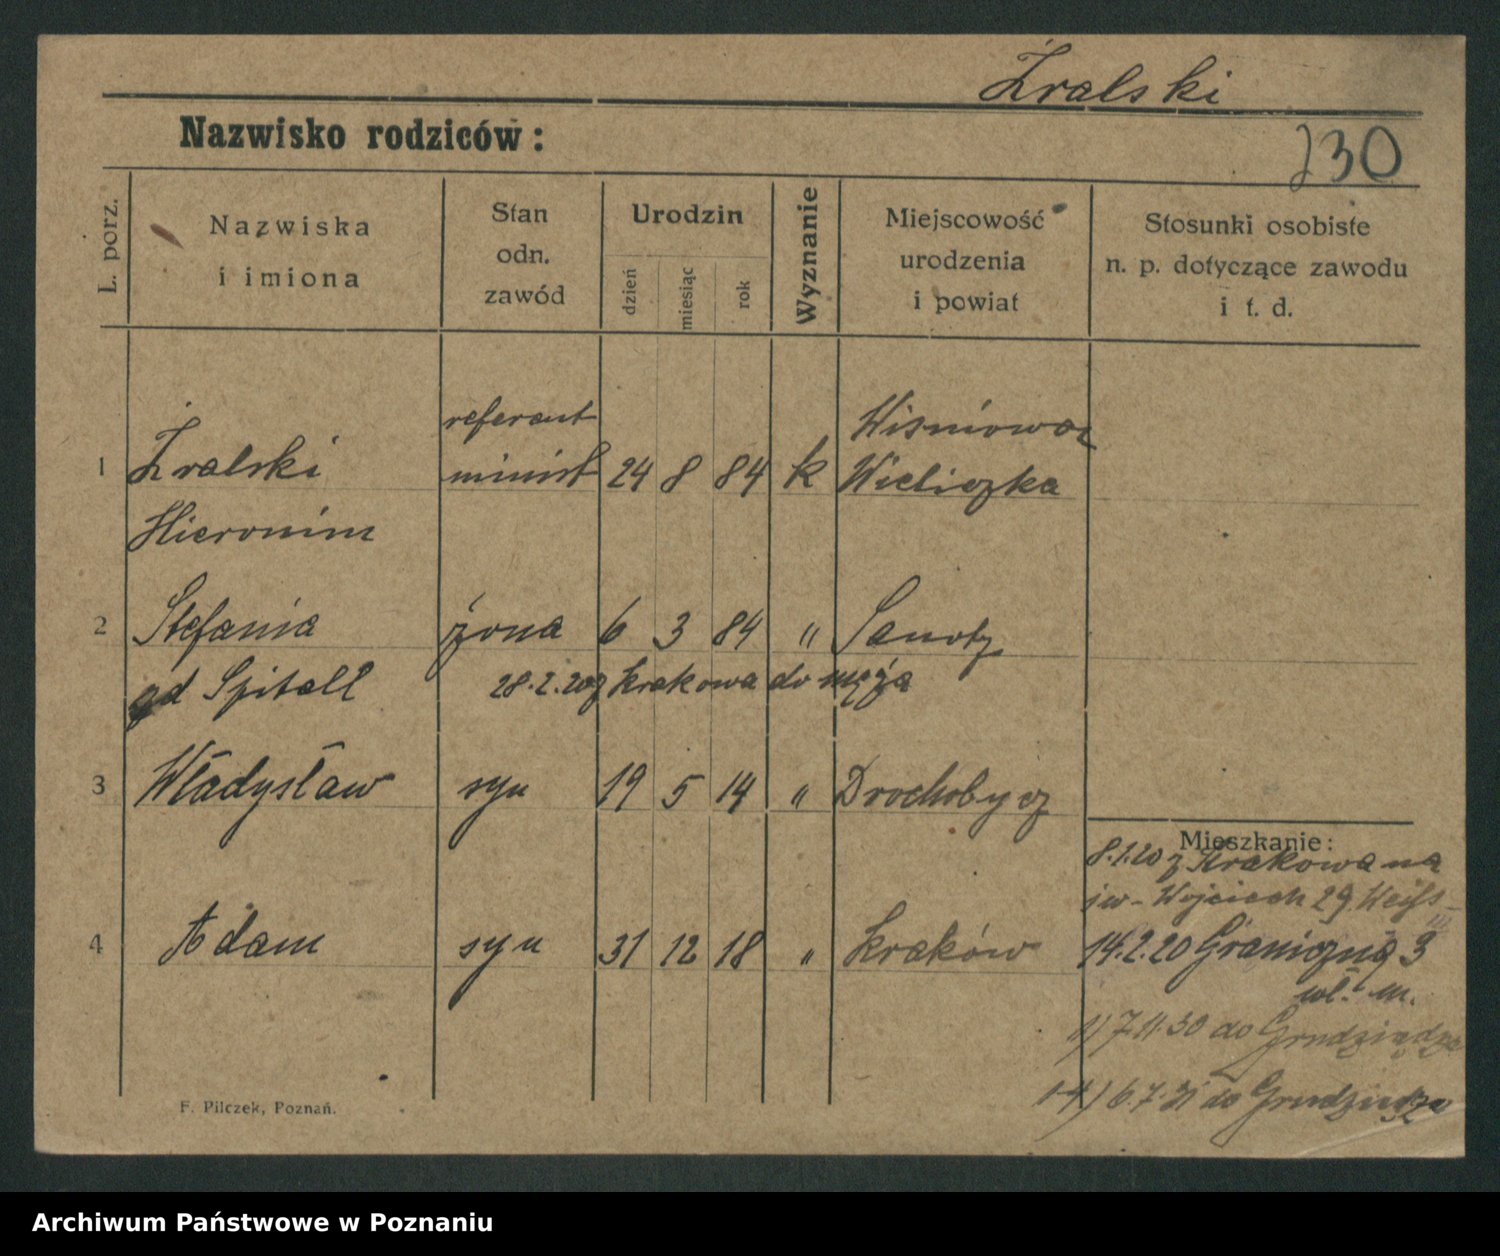 Żralski
Nazwisko rodziców:
730
L. porz.
Nazwiska
i imiona
Stan
odn.
zawód
Urodzin
dzień
miesiąc
rok
Wyznanie
Miejscowość
urodzenia
i powiat
Stosunki osobiste
n. p. dotyczące zawodu
i t. d.
referent Wiśniowa
1 Żralski minist 24 8 84 k Wieliczka
Hieronim
2 Stefania żona 6 3 84 " Sanok
Spitall 28.2.20 z Krakowa do męża
3 Władysław syn 19 5 14 " Drochobycz
Mieszkanie:
8.1.20 z Krakowa na
Wojciech 29
4 Adam syn 31 12 18 " Kraków 14.2.20 Graniczna 3
wł. m.
1) 7.11.30 do Grudziądza
1-4) 6.7.31 do Grudziądza
F. Pilczek, Poznań.
Archiwum Państwowe w Poznaniu